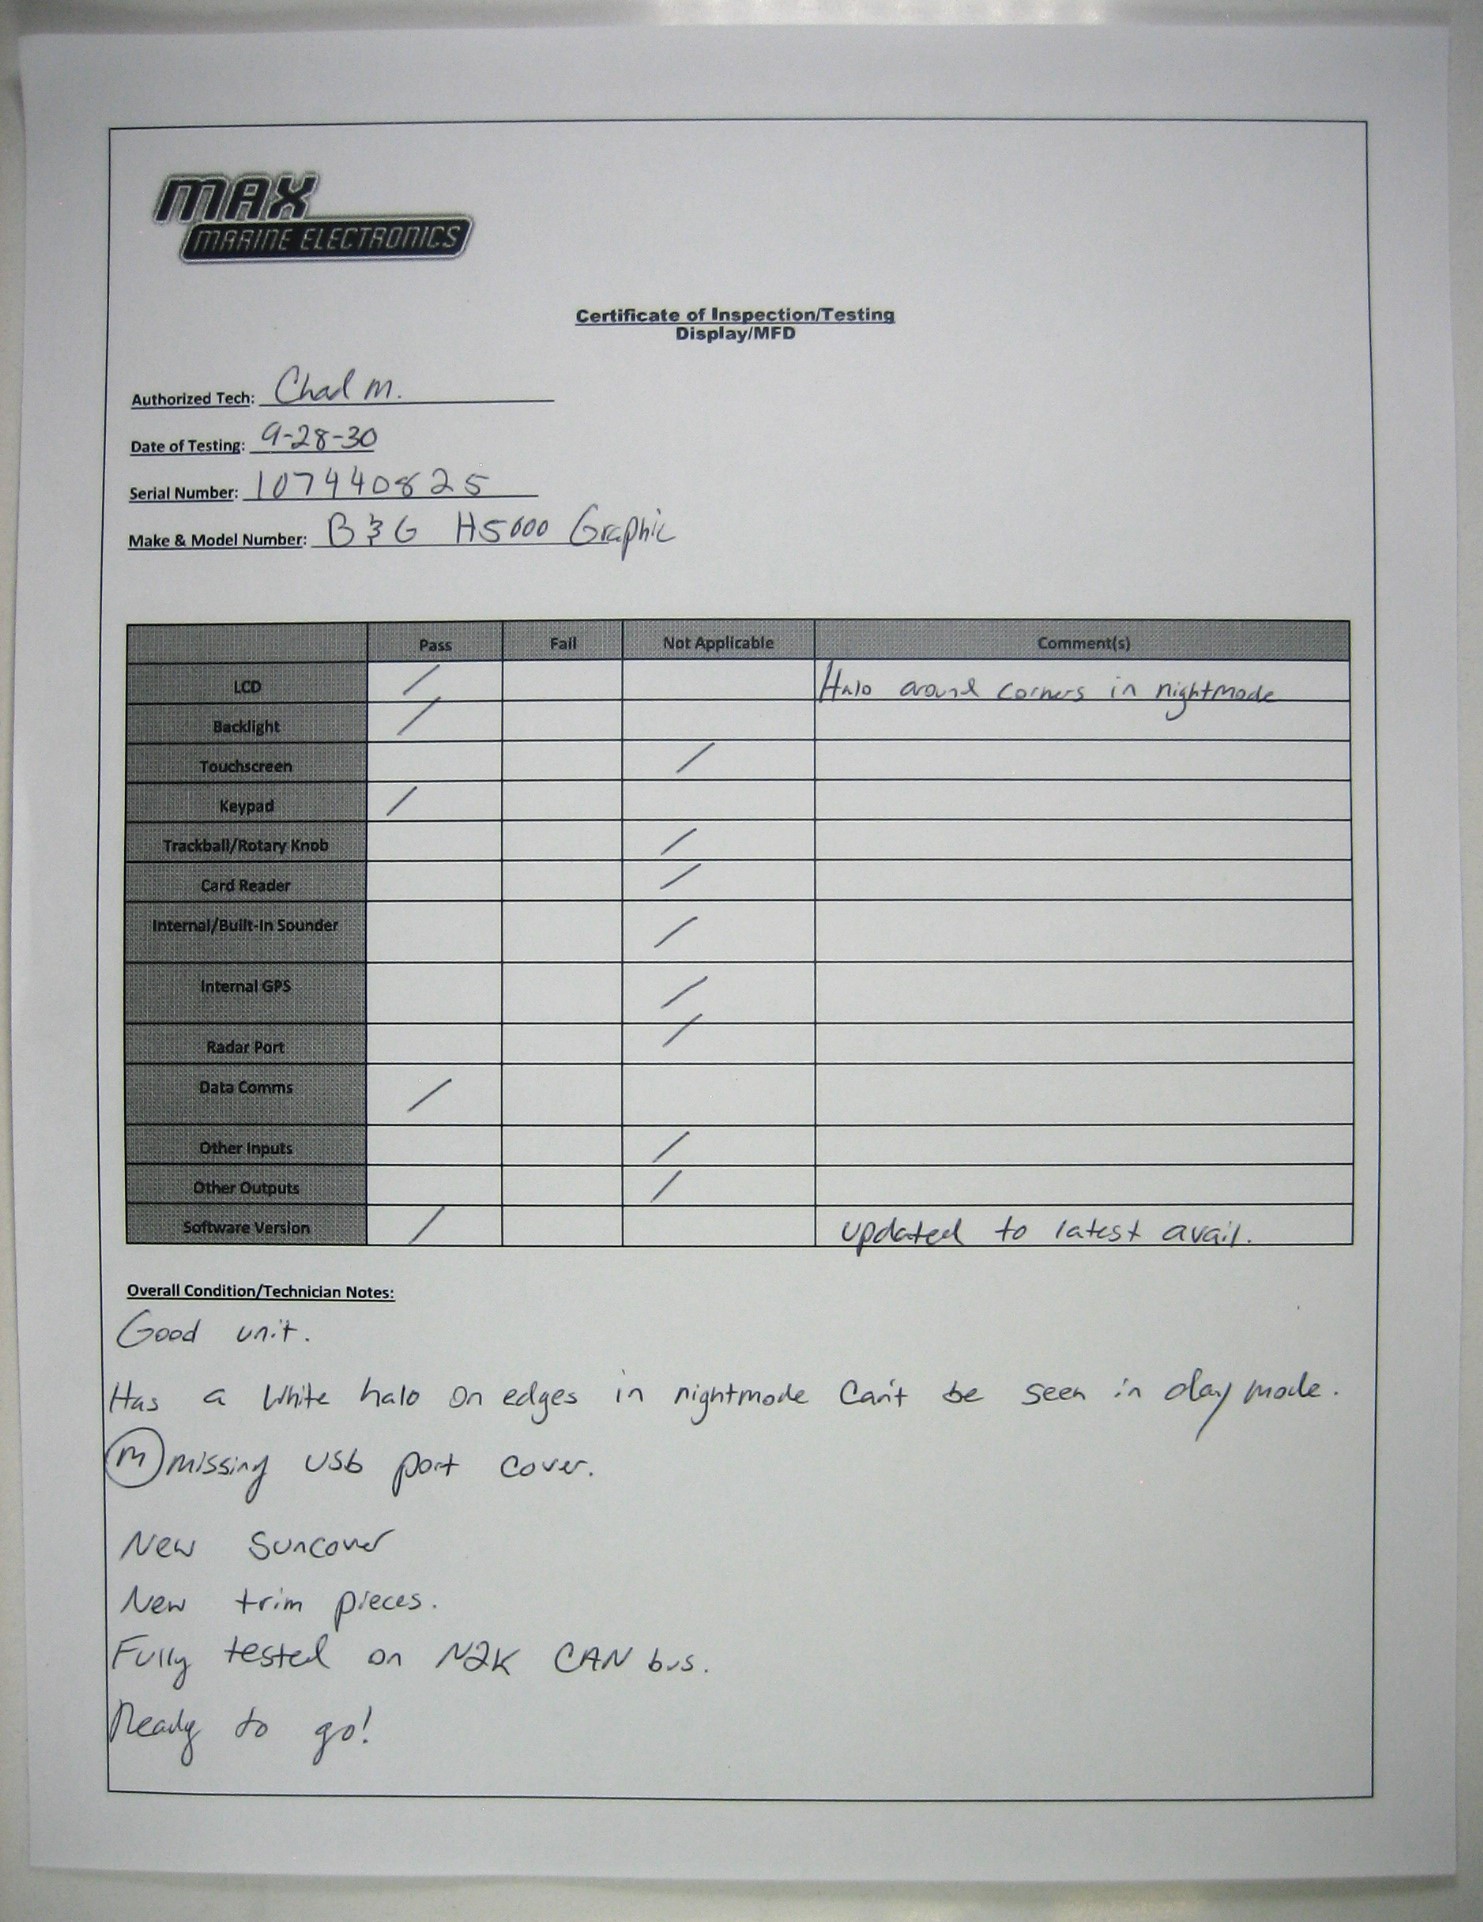 MAX
MARINE ELECTRONICS
Certificate of Inspection/Testing
Display/MFD
Authorized Tech: Chad M.
Date of Testing: 9-28-30
Serial Number: 107440825
Make & Model Number: B&G H5000 Graphic
Pass Fail Not Applicable Comment(s)
LCD / Halo around corners in nightmode
Backlight /
Touchscreen /
Keypad /
Trackball/Rotary Knob /
Card Reader /
Internal/Built-In Sounder /
Internal GPS /
Radar Port /
Data Comms /
Other Inputs /
Other Outputs /
Software Version / updated to latest avail.
Overall Condition/Technician Notes:
Good unit.
Has a white halo on edges in nightmode Can't be seen in day mode.
M missing USB port cover.
New Suncover
New trim pieces.
Fully tested on N2K CAN bus.
Ready to go!